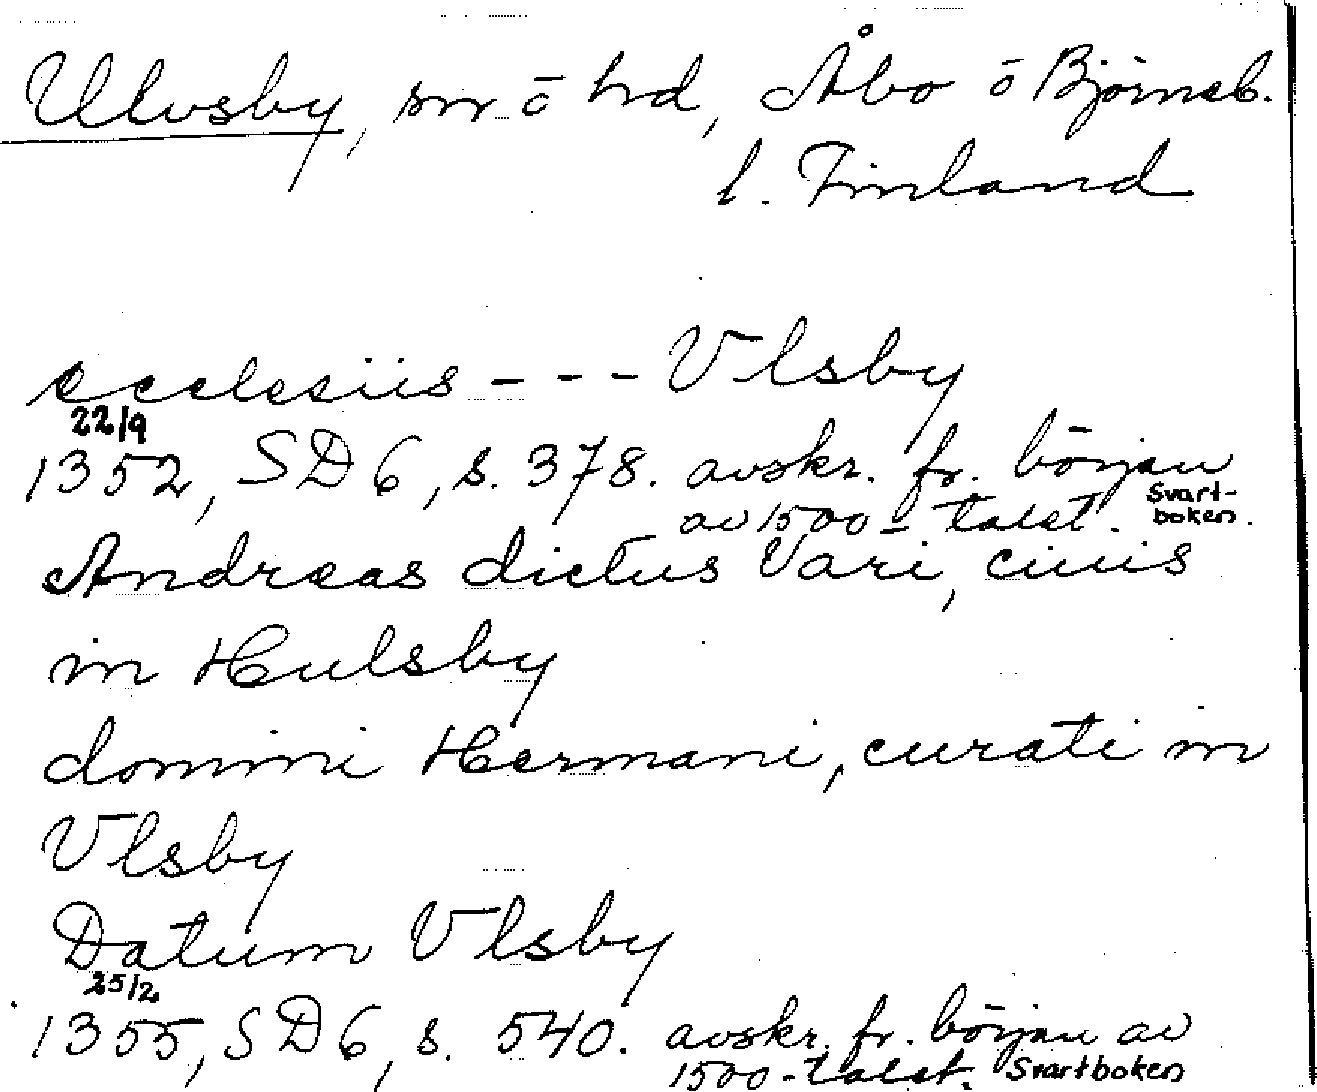 Ulvsby, sn o hd, Åbo o Björneb.
l. Finland
ecclesiis - - - Vlsby
22/9
1352, SD 6, s. 378. avskr. fr. början
av 1500-talet. Svart-
boken.
Andreas dictus Vari, ciuis
in Hulsby
domini Hermani, curati in
Vlsby
Datum Vlsby
25/2
1355, SD 6, s. 540. avskr. fr. början av
1500-talet. Svartboken